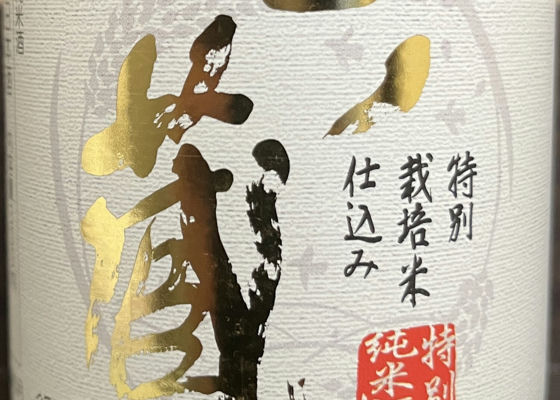 特別
栽培米
仕込み
蔵
特別
純米